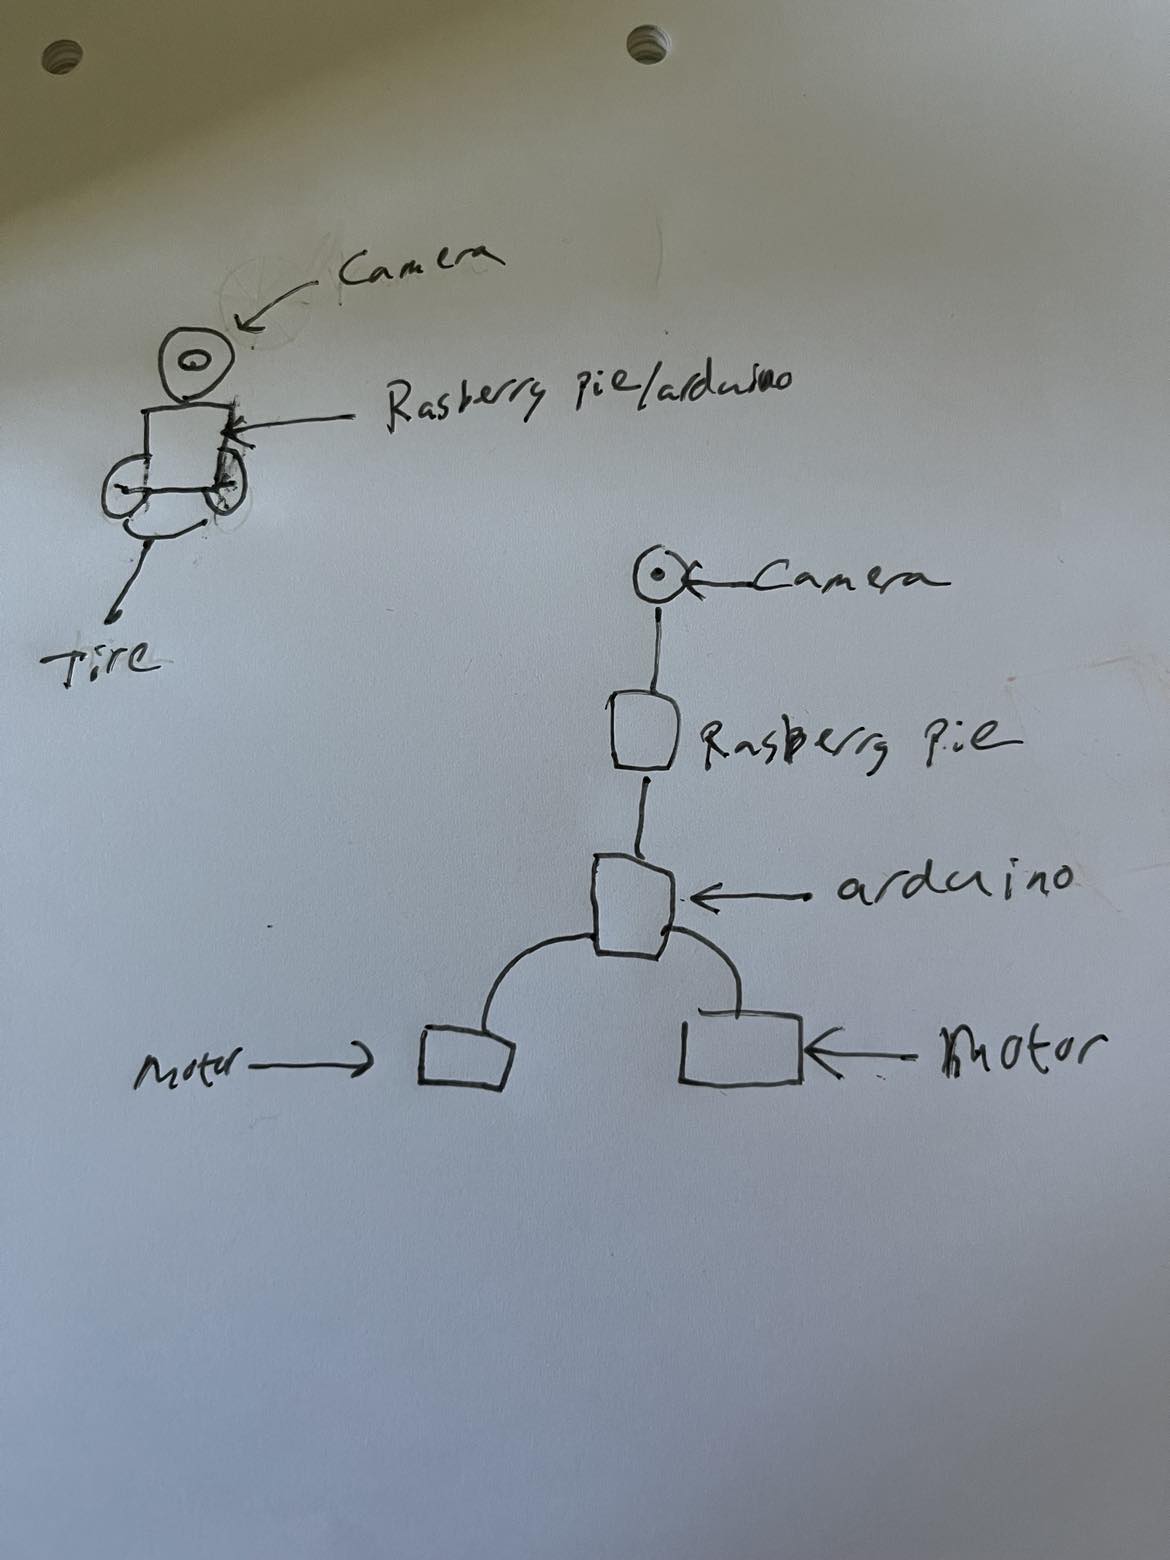 Camera
Rasberry pie/arduino
Tire
Camera
Rasberry pie
arduino
motor
motor